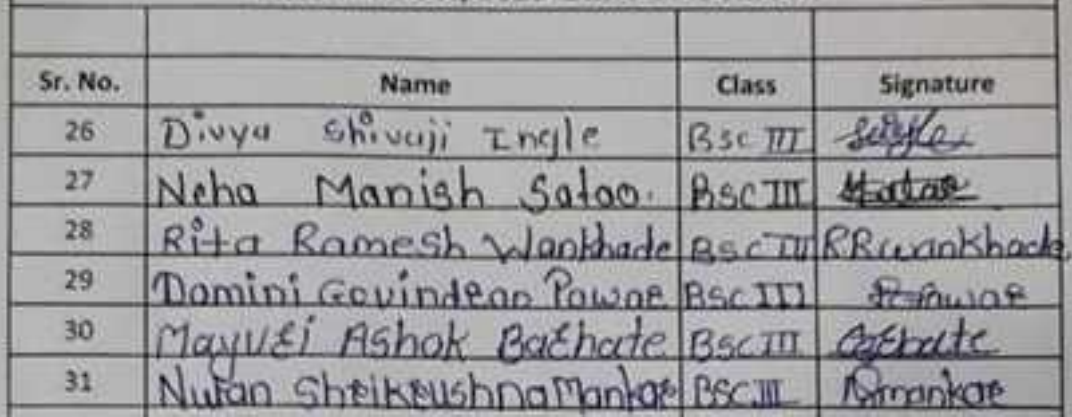 Sr. No. Name Class Signature
26 Divya Shivaji Ingle Bsc III
27 Neha Manish Satao. BSC III
28 Rita Ramesh Wankhade BSC III RRwankhade
29 Damini Govindrao Pawar BSC III Pawar
30 Mayuri Ashok Barhate BSC III
31 Nutan Shrikrushna Mankar BSC III Nmankar